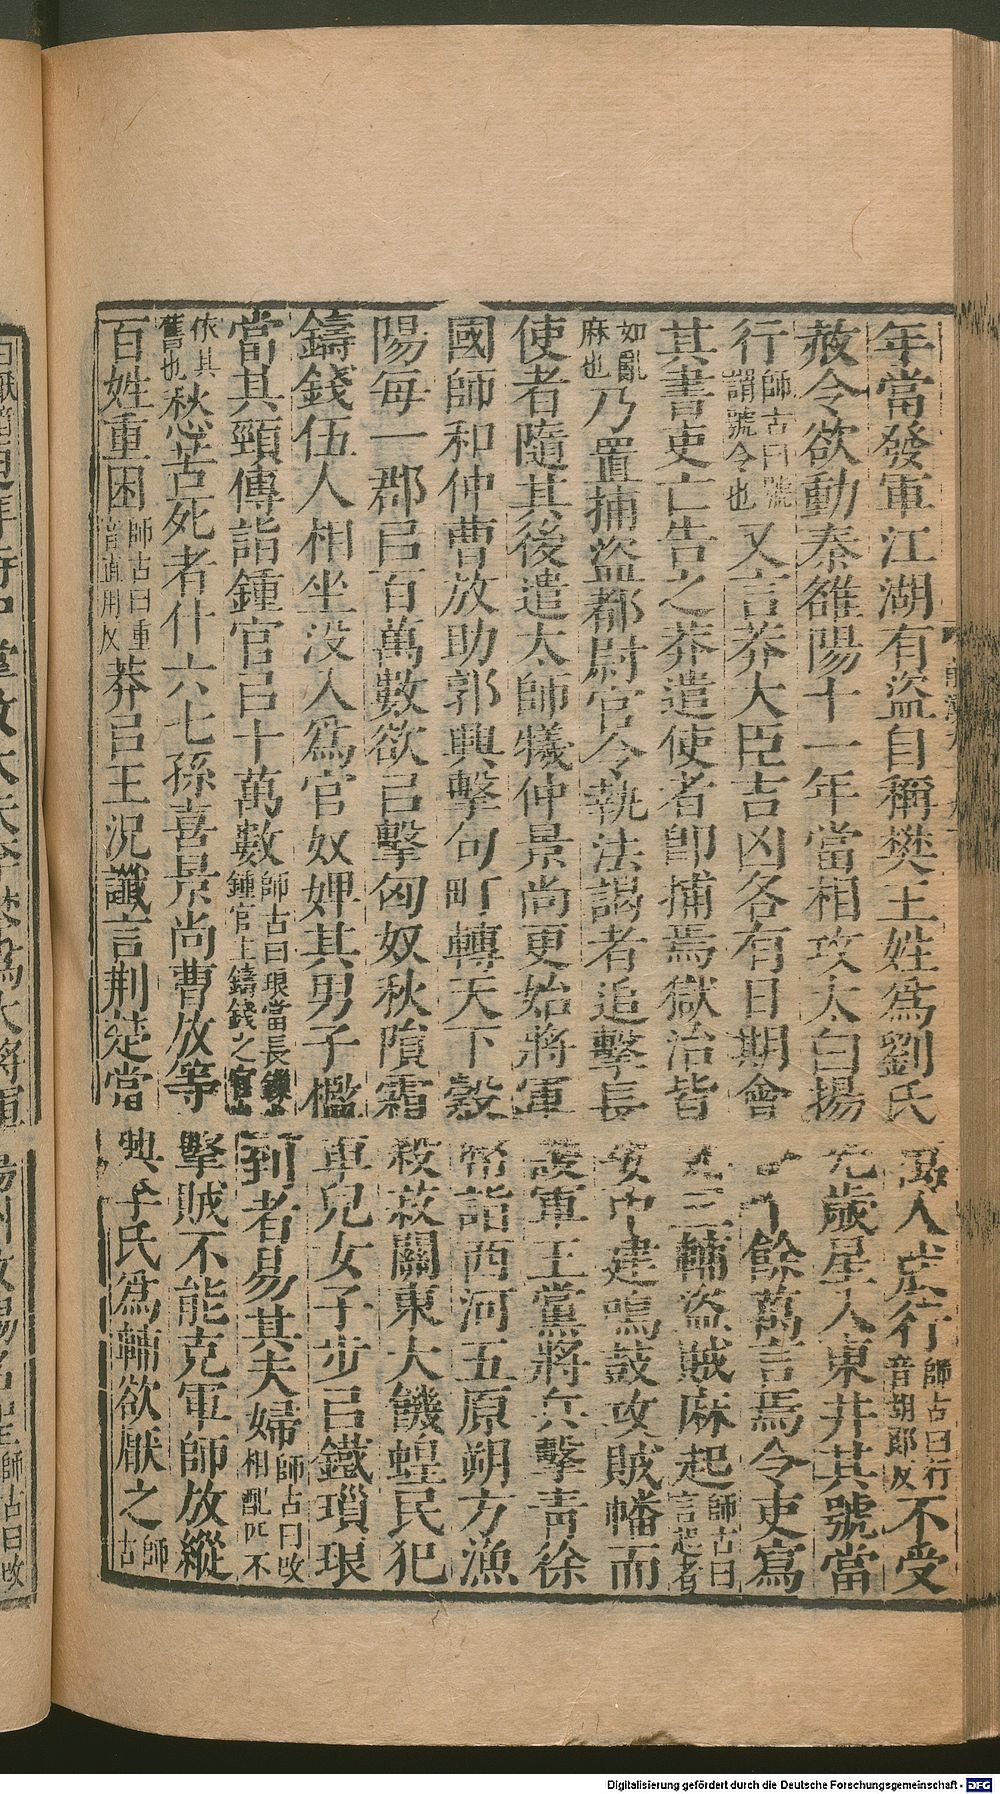 年當發軍江湖有盜自稱樊王姓爲劉氏萬人成行師古曰行音胡郎反不受
赦令欲動秦雒陽十一年當相攻太白揚光歲星入東井其號當
行師古曰號謂號令也又言莽大臣吉凶各有日期會十餘萬言焉令吏寫
其書吏亡告之莽遣使者即捕焉獄治皆三輔盜賊麻起師古曰言起者
如亂麻也乃置捕盜都尉官令執法謁者追擊長安中建鳴鼓攻賊幡而
使者隨其後遣太師犧仲景尚更始將軍護軍王黨將兵擊青徐
國師和仲曹放助郭興擊句町轉天下穀幣詣西河五原朔方漁
陽每一郡㠯百萬數欲㠯擊匈奴秋隕霜殺菽關東大饑蝗民犯
鑄錢伍人相坐没入爲官奴婢其男子檻車兒女子步㠯鐵瑣琅
當其頸傳詣鍾官㠯十萬數師古曰琅當長鏁也鍾官主鑄錢之官也到者易其夫婦師古曰改相配匹不
依其舊也愁苦死者什六七孫喜景尚曹放等擊賊不能克軍師放縱
百姓重困師古曰重音直用反莽㠯王況讖言荆楚當興李氏爲輔欲厭之師古
Digitalisierung gefördert durch die Deutsche Forschungsgemeinschaft - DFG